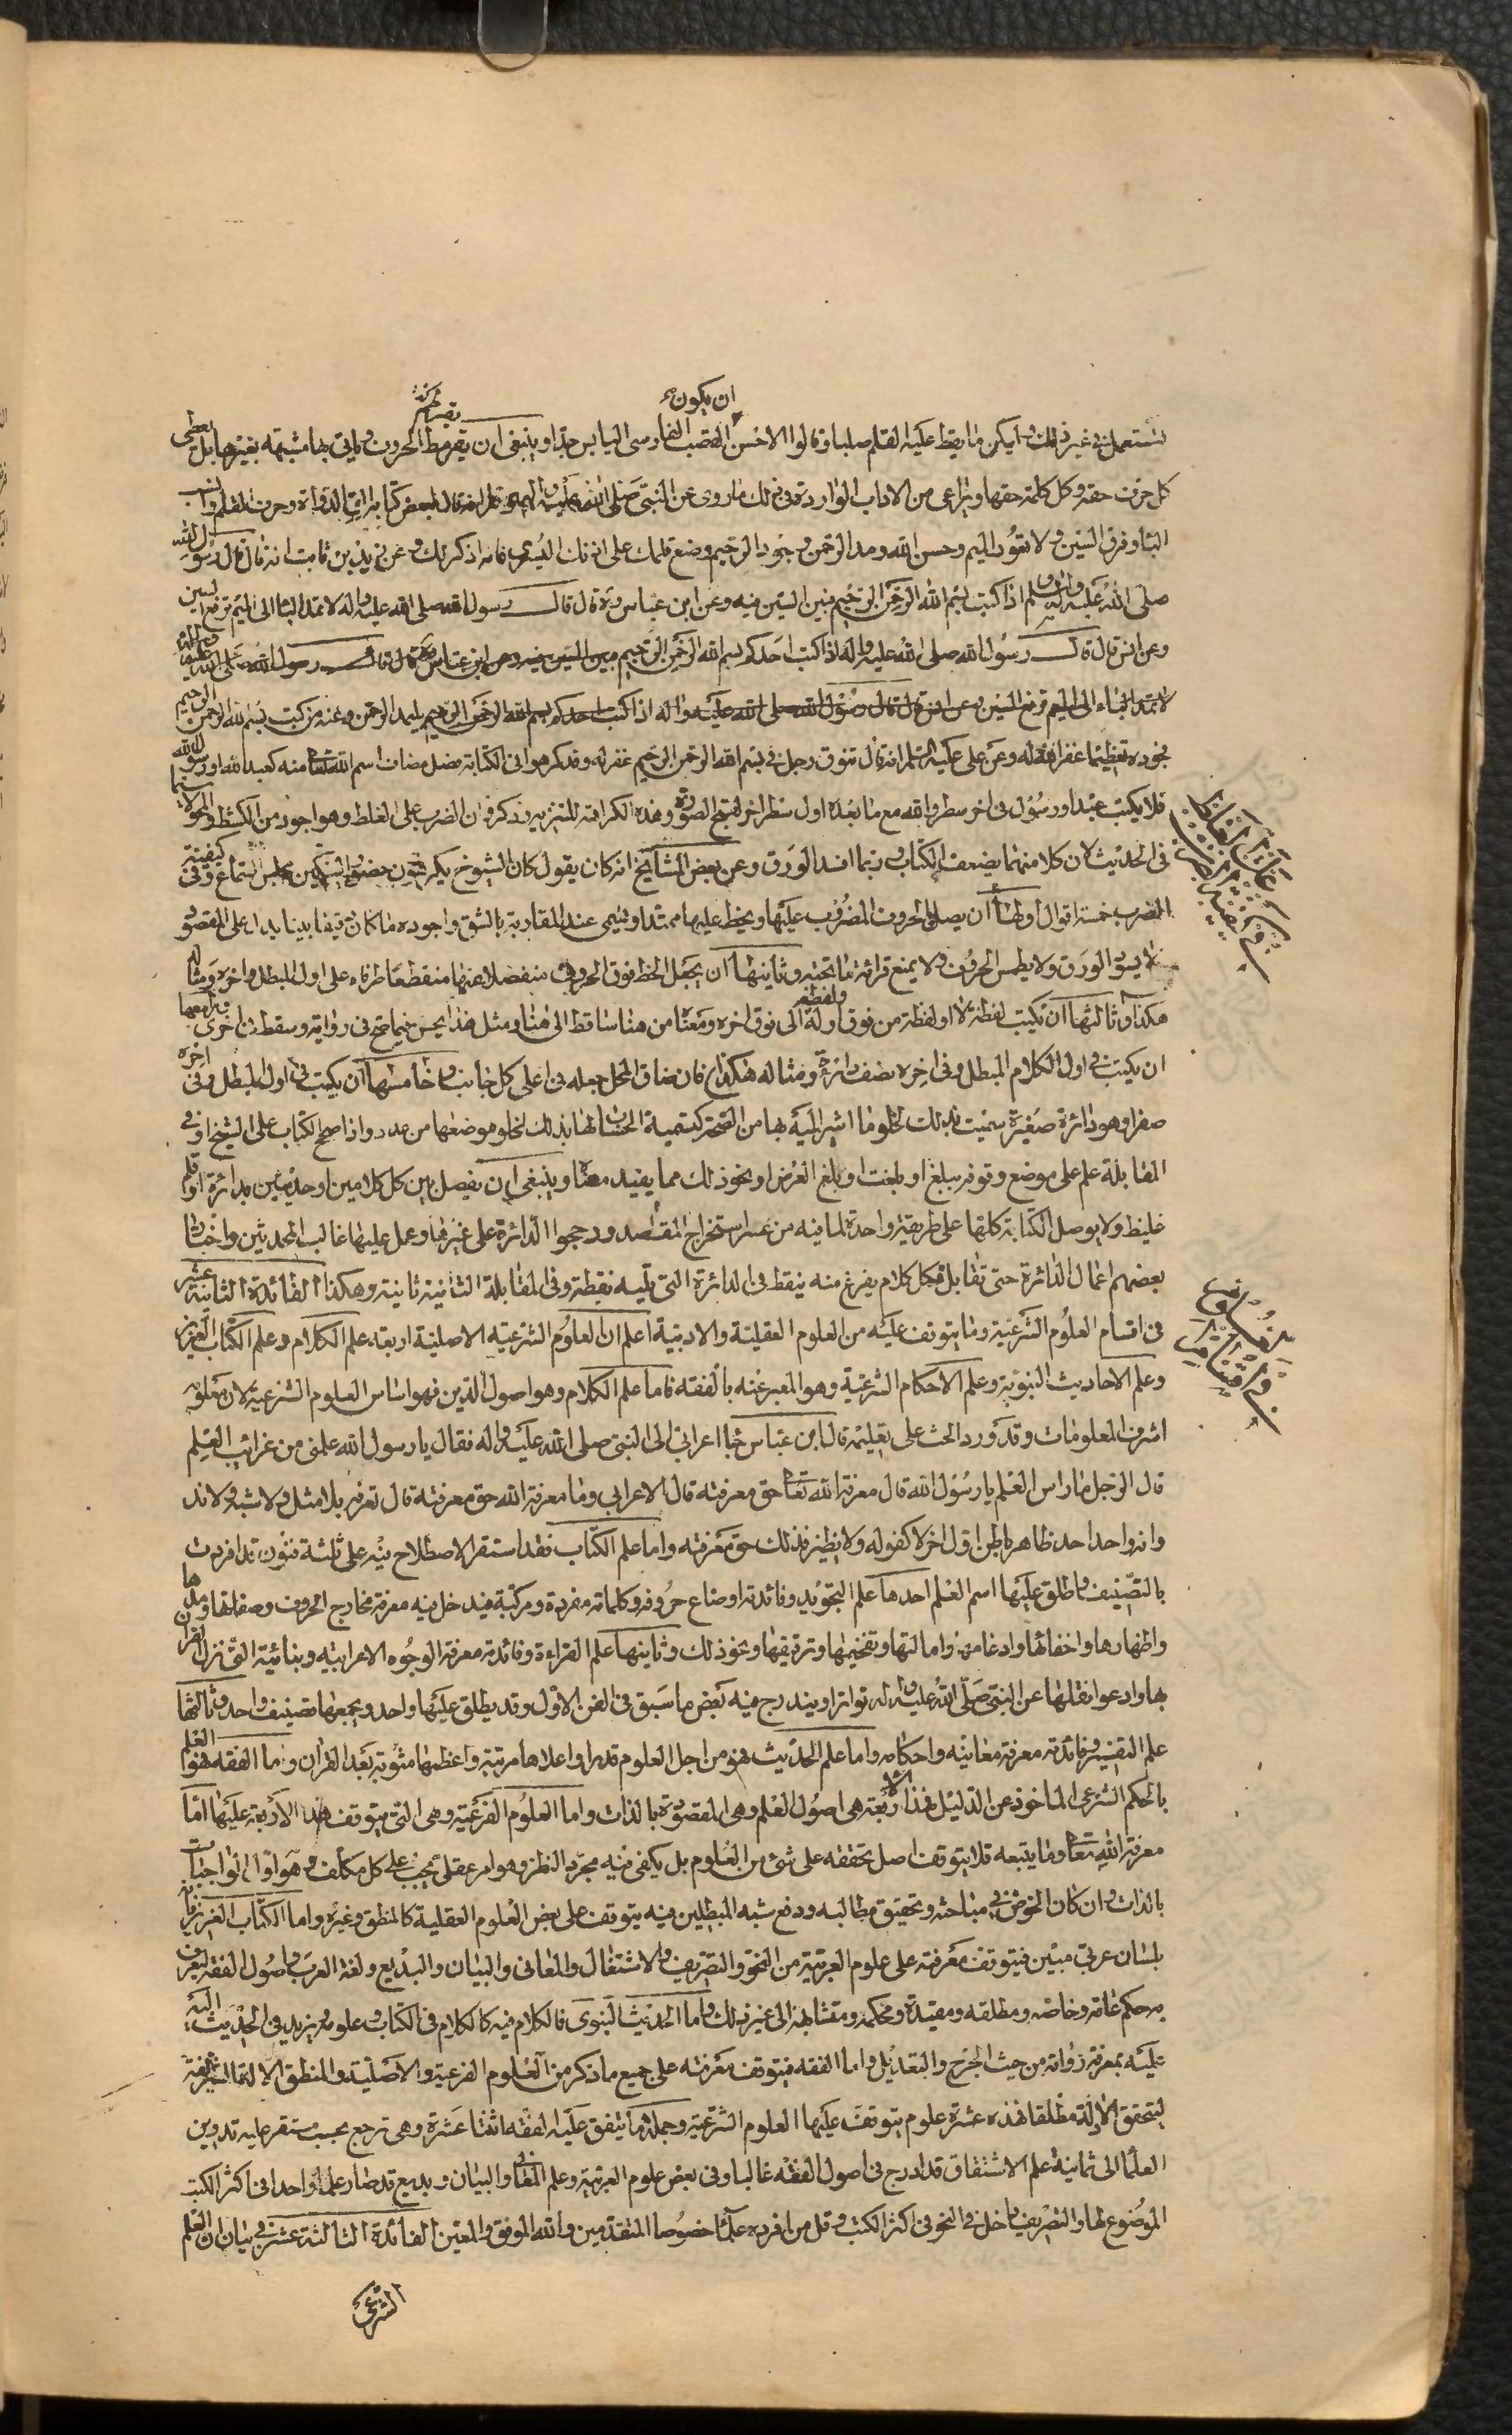 ان يكون
تستعمل في غير ذلك وليكن ما يقط عليه القلم صلبا وقالوا الاحسن القصب الفارسي اليابس جدا وينبغي ان يقرمط الحروف ولا ياتي بها مشتبهة بغيرها بل يعطى
كل حرف حقه وكل كلمة حقها ويراعى من الاداب الواردة في ذلك ما روى عن النبي صلى الله عليه واله انه قال لبعض كتابه الق الدواة وحرف القلم وانصب
البا وفرق السين ولا تعور الميم وحسن الله ومد الرحمن وجود الرحيم وضع قلمك على اذنك اليسرى فانه اذكر لك وعن زيد بن ثابت انه قال قال رسول الله
صلى الله عليه واله وسلم اذا كتبت بسم الله الرحمن الرحيم فبين السين فيه وعن ابن عباس قال قال رسول الله صلى الله عليه واله لا تمد البا الى الميم ترفع السين
وعن انس قال قال رسول الله صلى الله عليه واله اذا كتب احدكم بسم الله الرحمن الرحيم فبين السين فيه وعن ابن عباس قال قال رسول الله صلى الله عليه واله
لا تمد الباء الى الميم ترفع السين وعن انس قال قال رسول الله صلى الله عليه واله اذا كتب احدكم بسم الله الرحمن الرحيم فليمد الرحمن وعنه من كتب بسم الله الرحمن الرحيم
فجوده تعظيما غفر الله له وعن علي عليه السلم انه قال تنوق رجل في بسم الله الرحمن الرحيم غفر له وقد كرهوا في الكتابة فصل مضاف اسم الله تعالى منه كعبد الله او رسول الله
فلا يكتب عبد او رسول في اخر سطر والله مع ما بعده اول سطر اخر لقبح الصورة وهذه الكراهة للتنزيه وذكر في ان الضرب على الغلط وهو اجود من الكشط والمحو لا سيما
في الحديث لان كلا منهما يضعف الكتاب وربما افسد الورق وعن بعض المشايخ انه كان يقول كان الشيوخ يكرهون حضور السكين مجلس السماع وفي كيفية
الضرب خمسة اقوال اولها ان يصل بالحروف المضروب عليها ويخط عليها ممتدا ويسمى عند المغاربة بالشق واجوده ما كان دقيقا بينا يدل على المقصود
لا يسود الورق ولا يطمس الحروف ولا يمنع قرائة ما تحته وثانيها ان يجعل الخط فوق الحروف منفصلا عنها منقطعا طرفاه على اول المبطل واخره ومثاله
هكذا وثالثها ان تكتب لفظة لا او لفظة من فوق اوله ولفظة الى فوق اخره ومعناه من هنا ساقط الى هنا ومثل هذا يحسن فيما صح في رواية وسقط في اخرى ورابعها
ان يكتب في اول الكلام المبطل وفي اخره نصف دائرة ومثاله هكذا فان ضاق المحل جعله في اعلى كل جانب وخامسها ان يكتب في اول المبطل وفي اخره
صفرا وهو دائرة صغيرة سميت بذلك لخلو ما اشير اليه بها من الصحة كتسمية الحساب لها بذلك لخلو موضعها من عدد واذا صح الكتاب على الشيخ او في
المقابلة علم على موضع وقوفه ببلغ او بلغت او بلغ العرض او نحو ذلك مما يفيد معناه وينبغي ان يفصل بين كل كلامين او حديثين بدائرة او قلم
غليظ ولا يوصل الكتابة كلها على طريقة واحدة لما فيه من عسر استخراج المقاصد ورجحوا الدائرة على غيرها وعمل عليها غالب المحدثين واختار
بعضهم اغفال الدائرة حتى تقابل فكل كلام يفرغ منه ينقط في الدائرة التي تليه نقطة وفي المقابلة الثانية ثانية وهكذا الفائدة الثانية عشر
في اقسام العلوم الشرعية وما يتوقف عليه من العلوم العقلية والادبية اعلم ان العلوم الشرعية الاصلية اربعة علم الكلام وعلم الكتاب العزيز
وعلم الاحاديث النبوية وعلم الاحكام الشرعية وهو المعبر عنه بالفقه فاما علم الكلام وهو اصول الدين فهو اساس العلوم الشرعية لان معلومه
اشرف المعلومات وقد ورد الحث على تعليمه قال ابن عباس جا اعرابي الى النبي صلى الله عليه واله فقال يا رسول الله علمني من غرائب العلم
قال الرجل ما راس العلم يا رسول الله قال معرفة الله تعالى حق معرفته قال الاعرابي وما معرفة الله حق معرفته قال تعرفه بلا مثل ولا شبه ولا ند
وانه واحد احد ظاهر باطن اول اخر لا كفو له ولا نظير فذلك حق معرفته واما علم الكتاب فقد استقر الاصطلاح فيه على ثلثة فنون قد افردت
بالتصنيف واطلق عليها اسم العلم احدها علم التجويد وفائدته اوضاع حروفه وكلماته مفردة ومركبة فيدخل فيه معرفة مخارج الحروف وصفاتها ومدها
واظهارها واخفائها وادغامها وامالتها وتفخيمها وترقيقها ونحو ذلك وثانيها علم القراءة وفائدته معرفة الوجوه الاعرابية وبنائية التي نزل القران
بها وادعوا نقلها عن النبي صلى الله عليه واله تواترا ويندرج فيه بعض ما سبق في الفن الاول وقد يطلق عليها واحد ويجمعها تصنيف واحد وثالثها
علم التفسير وفائدته معرفة معانيه واحكامه واما علم الحديث فهو من اجل العلوم قدرا واعلاها مرتبة واعظمها مثوبة بعد القران واما الفقه فهو العلم
بالحكم الشرعي الماخوذ عن الدليل فهذه الاربعة هي اصول العلم وهي المقصودة بالذات واما العلوم الفرعية وهي التي يتوقف هذا الاربعة عليها اما
معرفة الله تعالى وما يتبعه فلا يتوقف اصل تحققه على شئ من العلوم بل يكفي فيه مجرد النظر وهو امر عقلي يجب على كل مكلف وهو اول الواجبات
بالذات وان كان الخوض في مباحثه وتحقيق مطالبه ودفع شبه المبطلين فيه يتوقف على بعض العلوم العقلية كالمنطق وغيره واما الكتاب العزيز فانه
بلسان عربي مبين فيتوقف معرفته على علوم العربية من النحو والتصريف والاشتقاق والمعاني والبيان والبديع ولغة العرب واصول الفقه ليعرف
به حكم عامه وخاصه ومطلقه ومقيده ومحكمه ومتشابهه الى غير ذلك واما الحديث النبوي فالكلام فيه كالكلام في الكتاب وعلومه ويزيد في الحديث اليه
عليه بمعرفة رواته من حيث الجرح والتعديل واما الفقه فيتوقف معرفته على جميع ما ذكر من العلوم الفرعية والاصلية والمنطق الالة الشريفة
لتحقق الادلة مطلقا فهذه عشرة علوم يتوقف عليها العلوم الشرعية وجملة ما يتفق عليه الفقه اثنتا عشرة وهي ترجع بحسب مستقر عليه تدوين
العلما الى ثمانية علم الاشتقاق قد ادرج في اصول الفقه غالبا وفي بعض علوم العربية وعلم المعاني والبيان وبديع قد صار علما واحدا في اكثر الكتب
الموضوع لها والتصريف داخل في النحو في اكثر الكتب وقل من افرده علما خصوصا المتقدمين والله الموفق والمعين الفائدة الثالثة عشر في بيان ان العلم
الشرعي